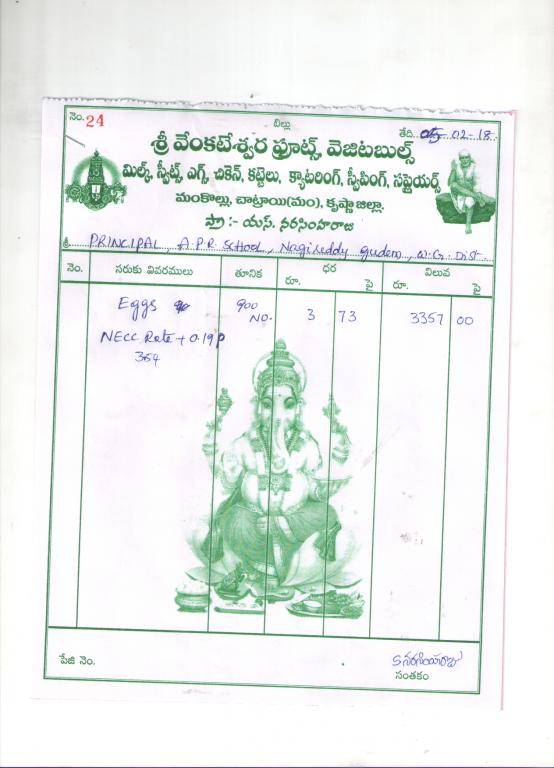 నెం. 24
బిల్లు
తేది. 05-02-18
శ్రీ వేంకటేశ్వర ఫ్రూట్స్, వెజిటబుల్స్
మిల్క్, స్వీట్స్, ఎగ్స్, చికెన్, కట్టెలు, క్యాటరింగ్, స్వీపింగ్, సప్లైయర్స్
మంకొల్లు, చాట్రాయి(మం), కృష్ణా జిల్లా.
ప్రొ :- యస్. నరసింహరాజు
శ్రీ PRINCIPAL, A.P.R. SCHOOL, Nagireddy gudem, W.G. Dist
నెం. సరుకు వివరములు తూనిక ధర విలువ
రూ. పై రూ. పై
Eggs 900 3 73 3357 00
NO.
NECC Rate + 0.19 P
354
పేజి నెం.
సంతకం